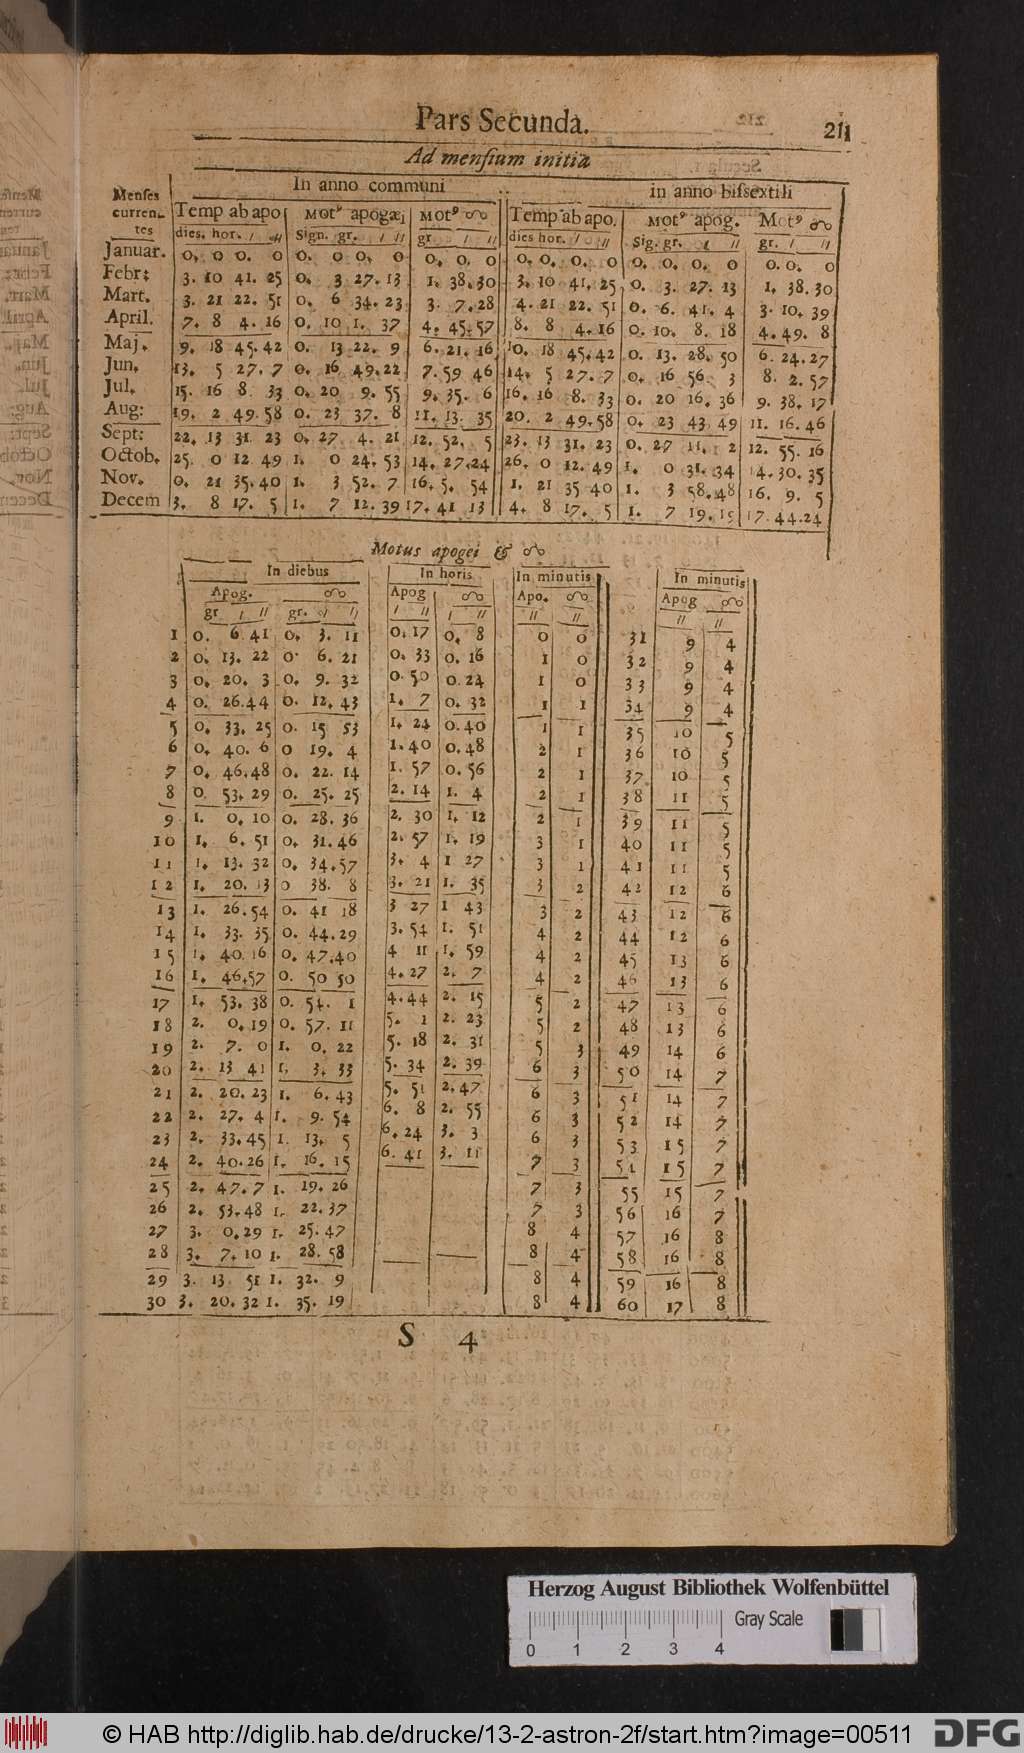 Pars Secunda. 211
Ad mensium initia
Menses curren- tes | In anno communi | in anno bissextili
Temp ab apo | motꝰ apogæi | motꝰ ☊ | Temp ab apo. | motꝰ apog. | Motꝰ ☊
dies. hor. ′ ″ | Sign. gr. ′ ″ | gr ′ ″ | dies hor. ′ ″ | Sig. gr. ′ ″ | gr. ′ ″
Januar. 0. 0 0. 0 | 0. 0 0. 0 | 0. 0. 0 | 0. 0. 0. 0 | 0. 0. 0. 0 | 0. 0. 0
Febr: 3. 10 41. 25 | 0. 3 27. 13 | 1. 38. 30 | 3. 10 41. 25 | 0. 3. 27. 13 | 1. 38. 30
Mart. 3. 21 22. 51 | 0. 6 34. 23 | 3. 7. 28 | 4. 21 22. 51 | 0. 6. 41. 4 | 3. 10. 39
April. 7. 8 4. 16 | 0. 10 1. 37 | 4. 45. 57 | 8. 8 4. 16 | 0. 10. 8. 18 | 4. 49. 8
Maj. 9. 18 45. 42 | 0. 13 22. 9 | 6. 21. 16 | 10. 18 45. 42 | 0. 13. 28. 50 | 6. 24. 27
Jun. 13. 5 27. 7 | 0. 16 49. 22 | 7. 59 46 | 14. 5 27. 7 | 0. 16 56. 3 | 8. 2. 57
Jul. 15. 16 8. 33 | 0. 20 9. 55 | 9. 35. 6 | 16. 16 8. 33 | 0. 20 16. 36 | 9. 38. 17
Aug: 19. 2 49. 58 | 0. 23 37. 8 | 11. 13. 35 | 20. 2 49. 58 | 0. 23 43. 49 | 11. 16. 46
Sept: 22. 13 31. 23 | 0. 27 4. 21 | 12. 52. 5 | 23. 13 31. 23 | 0. 27 11. 2 | 12. 55. 16
Octob. 25. 0 12 49 | 1. 0 24. 53 | 14. 27. 24 | 26. 0 12. 49 | 1. 0 31. 34 | 14. 30. 35
Nov. 0. 21 35. 40 | 1. 3 52. 7 | 16. 5. 54 | 1. 21 35 40 | 1. 3 58. 48 | 16. 9. 5
Decem 3. 8 17. 5 | 1. 7 12. 39 | 17. 41 13 | 4. 8 17. 5 | 1. 7 19. 15 | 17. 44. 24
Motus apogei & ☊
In diebus | In horis | In minutis | In minutis
Apog. | ☊ | Apog | ☊ | Apo. | ☊ | Apog | ☊
gr ′ ″ | gr. ′ ″ | ′ ″ | ′ ″ | ″ | ″ | ″ | ″
1 | 0. 6 41 | 0. 3. 11 | 0. 17 | 0. 8 | 0 | 0 | 31 | 9 | 4
2 | 0. 13. 22 | 0. 6. 21 | 0. 33 | 0. 16 | 1 | 0 | 32 | 9 | 4
3 | 0. 20. 3 | 0. 9. 32 | 0. 50 | 0. 24 | 1 | 0 | 33 | 9 | 4
4 | 0. 26. 44 | 0. 12. 43 | 1. 7 | 0. 32 | 1 | 1 | 34 | 9 | 4
5 | 0. 33. 25 | 0. 15 53 | 1. 24 | 0. 40 | 1 | 1 | 35 | 10 | 5
6 | 0. 40. 6 | 0 19. 4 | 1. 40 | 0. 48 | 2 | 1 | 36 | 10 | 5
7 | 0. 46. 48 | 0. 22. 14 | 1. 57 | 0. 56 | 2 | 1 | 37 | 10 | 5
8 | 0. 53. 29 | 0. 25. 25 | 2. 14 | 1. 4 | 2 | 1 | 38 | 11 | 5
9 | 1. 0. 10 | 0. 28. 36 | 2. 30 | 1. 12 | 2 | 1 | 39 | 11 | 5
10 | 1. 6. 51 | 0. 31. 46 | 2. 57 | 1. 19 | 3 | 1 | 40 | 11 | 5
11 | 1. 13. 32 | 0. 34. 57 | 3. 4 | 1 27 | 3 | 1 | 41 | 11 | 5
12 | 1. 20. 13 | 0 38. 8 | 3. 21 | 1. 35 | 3 | 2 | 42 | 12 | 6
13 | 1. 26. 54 | 0. 41 18 | 3 27 | 1 43 | 3 | 2 | 43 | 12 | 6
14 | 1. 33. 35 | 0. 44. 29 | 3. 54 | 1. 51 | 4 | 2 | 44 | 12 | 6
15 | 1. 40. 16 | 0. 47. 40 | 4 11 | 1. 59 | 4 | 2 | 45 | 13 | 6
16 | 1. 46. 57 | 0. 50 50 | 4. 27 | 2. 7 | 4 | 2 | 46 | 13 | 6
17 | 1. 53. 38 | 0. 54. 1 | 4. 44 | 2. 15 | 5 | 2 | 47 | 13 | 6
18 | 2. 0. 19 | 0. 57. 11 | 5. 1 | 2. 23 | 5 | 2 | 48 | 13 | 6
19 | 2. 7. 0 | 1. 0. 22 | 5. 18 | 2. 31 | 5 | 3 | 49 | 14 | 6
20 | 2. 13 41 | 1. 3. 33 | 5. 34 | 2. 39 | 6 | 3 | 50 | 14 | 7
21 | 2. 20. 23 | 1. 6. 43 | 5. 51 | 2. 47 | 6 | 3 | 51 | 14 | 7
22 | 2. 27. 4 | 1. 9. 54 | 6. 8 | 2. 55 | 6 | 3 | 52 | 14 | 7
23 | 2. 33. 45 | 1. 13. 5 | 6. 24 | 3. 3 | 6 | 3 | 53 | 15 | 7
24 | 2. 40. 26 | 1. 16. 15 | 6. 41 | 3. 11 | 7 | 3 | 54 | 15 | 7
25 | 2. 47. 7 | 1. 19. 26 | 7 | 3 | 55 | 15 | 7
26 | 2. 53. 48 | 1. 22. 37 | 7 | 3 | 56 | 16 | 7
27 | 3. 0. 29 | 1. 25. 47 | 8 | 4 | 57 | 16 | 8
28 | 3. 7. 10 | 1. 28. 58 | 8 | 4 | 58 | 16 | 8
29 | 3. 13. 51 | 1. 32. 9 | 8 | 4 | 59 | 16 | 8
30 | 3. 20. 32 | 1. 35. 19 | 8 | 4 | 60 | 17 | 8
S 4
Herzog August Bibliothek Wolfenbüttel
Gray Scale
0 1 2 3 4
© HAB http://diglib.hab.de/drucke/13-2-astron-2f/start.htm?image=00511
DFG